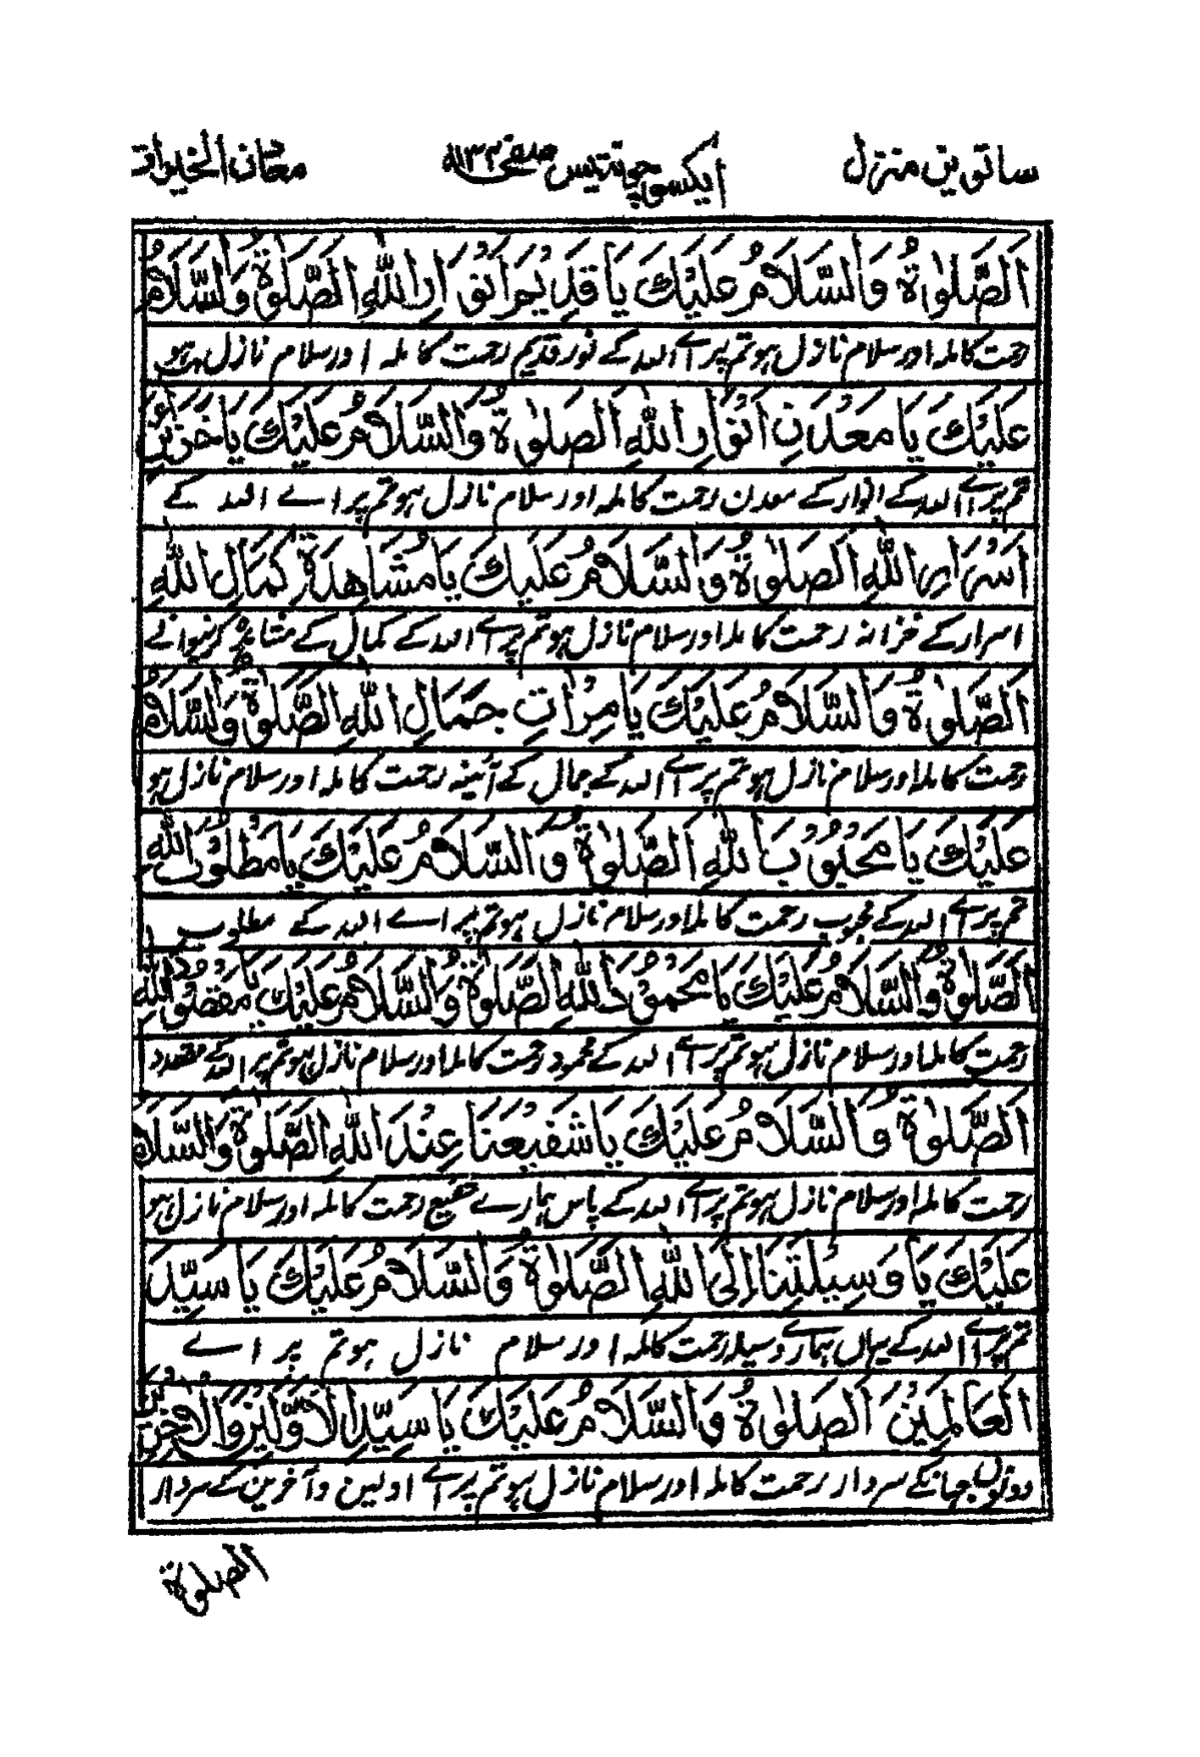 ساتویں منزل ایکسو چونتیس صفحہ ۱۳۴
اَلصَّلٰوةُ وَالسَّلَامُ عَلَيْكَ يَا قَدِيْمَ اَنْوَارِ اللّٰهِ اَلصَّلٰوةُ وَالسَّلَامُ
رحمت کاملہ اور سلام نازل ہو تم پر اے اللہ کے نور قدیم رحمت کاملہ اور سلام نازل ہو
عَلَيْكَ يَا مَعْدَنِ اَنْوَارِ اللّٰهِ اَلصَّلٰوةُ وَالسَّلَامُ عَلَيْكَ يَا خَزِيْنَ
تم پر اے اللہ کے انوار کے معدن رحمت کاملہ اور سلام نازل ہو تم پر اے اللہ کے
اَسْرَارِ اللّٰهِ اَلصَّلٰوةُ وَالسَّلَامُ عَلَيْكَ يَا مُشَاهِدَةِ كَمَالِ اللّٰهِ
اسرار کے خزانہ رحمت کاملہ اور سلام نازل ہو تم پر اے اللہ کے کمال کے مشاہدہ کرنیوالے
اَلصَّلٰوةُ وَالسَّلَامُ عَلَيْكَ يَا مِرْاٰتِ جَمَالِ اللّٰهِ اَلصَّلٰوةُ وَالسَّلَامُ
رحمت کاملہ اور سلام نازل ہو تم پر اے اللہ کے جمال کے آئینہ رحمت کاملہ اور سلام نازل ہو
عَلَيْكَ يَا مَحْبُوْبَ اللّٰهِ اَلصَّلٰوةُ وَالسَّلَامُ عَلَيْكَ يَا مَطْلُوْبَ اللّٰهِ
تم پر اے اللہ کے محبوب رحمت کاملہ اور سلام نازل ہو تم پر اے اللہ کے مطلوب
اَلصَّلٰوةُ وَالسَّلَامُ عَلَيْكَ يَا مَحْمُوْدَ اللّٰهِ اَلصَّلٰوةُ وَالسَّلَامُ عَلَيْكَ يَا مَقْصُوْدَ اللّٰهِ
رحمت کاملہ اور سلام نازل ہو تم پر اے اللہ کے محمود رحمت کاملہ اور سلام نازل ہو تم پر اللہ کے مقصد
اَلصَّلٰوةُ وَالسَّلَامُ عَلَيْكَ يَا شَفِيْعَنَا عِنْدَ اللّٰهِ اَلصَّلٰوةُ وَالسَّلَامُ
رحمت کاملہ اور سلام نازل ہو تم پر اے اللہ کے پاس ہمارے شفیع رحمت کاملہ اور سلام نازل ہو
عَلَيْكَ يَا وَسِيْلَتَنَا اِلَى اللّٰهِ اَلصَّلٰوةُ وَالسَّلَامُ عَلَيْكَ يَا سَيِّدَ
تم پر اے اللہ کے یہاں ہمارے وسیلہ رحمت کاملہ اور سلام نازل ہو تم پر اے
الْعَالَمِيْنَ اَلصَّلٰوةُ وَالسَّلَامُ عَلَيْكَ يَا سَيِّدِ الْاَوَّلِيْنَ وَالْاٰخِرِيْنَ
دونوں جہانکے سردار رحمت کاملہ اور سلام نازل ہو تم پر اے اولین و آخرین کے سردار
الصلوة